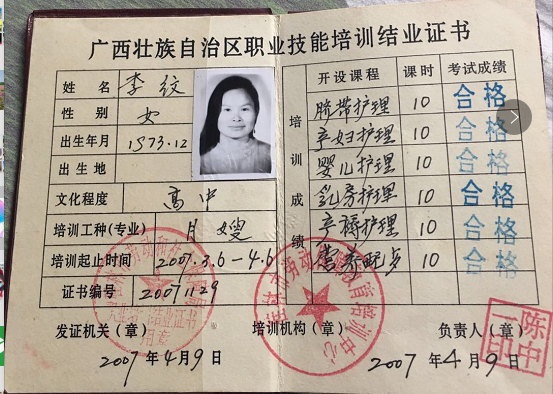 广西壮族自治区职业技能培训结业证书
姓名 李纹
性别 女
出生年月 1973.12
出生地
文化程度 高中
培训工种(专业) 月嫂
培训起止时间 2007.3.6－4.6
证书编号 20071129
发证机关(章)
2007年4月9日
培训成绩
开设课程 课时 考试成绩
脐带护理 10 合格
产妇护理 10 合格
婴儿护理 10 合格
乳房护理 10 合格
产褥护理 10 合格
营养配点 10 合格
培训机构(章) 负责人(章)
2007年4月9日